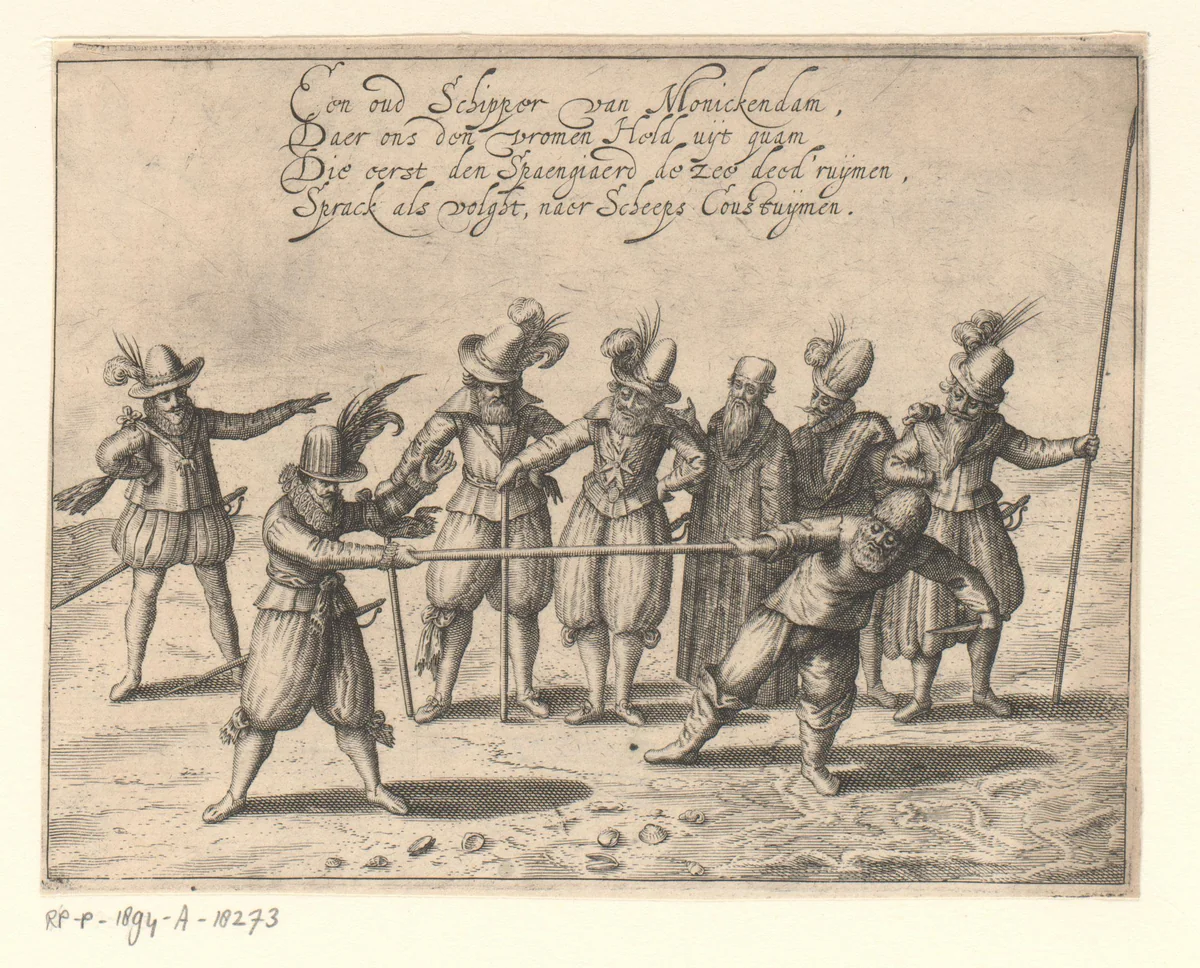 Een oud Schipper van Monickendam,
Daer ons den vromen Held uijt quam
Die eerst den Spaengiaerd de zee deed' ruijmen,
Sprack als volght, naer Scheeps Coustuijmen.
RP-P-1894-A-18273